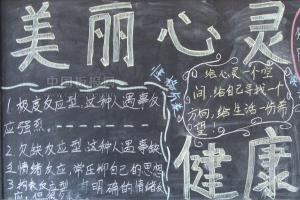 美丽心灵
健康
性格分类
1、极度反应型,这种人遇事反
应强烈。
2、欠缺反应型,这种人遇事缺
乏情绪反应,常压抑自己的思想
3、拘束反应型 有明确的情绪反
应,但很
①给心灵一个空
间,给自己寻找一个
方向,给生活一份希
望。